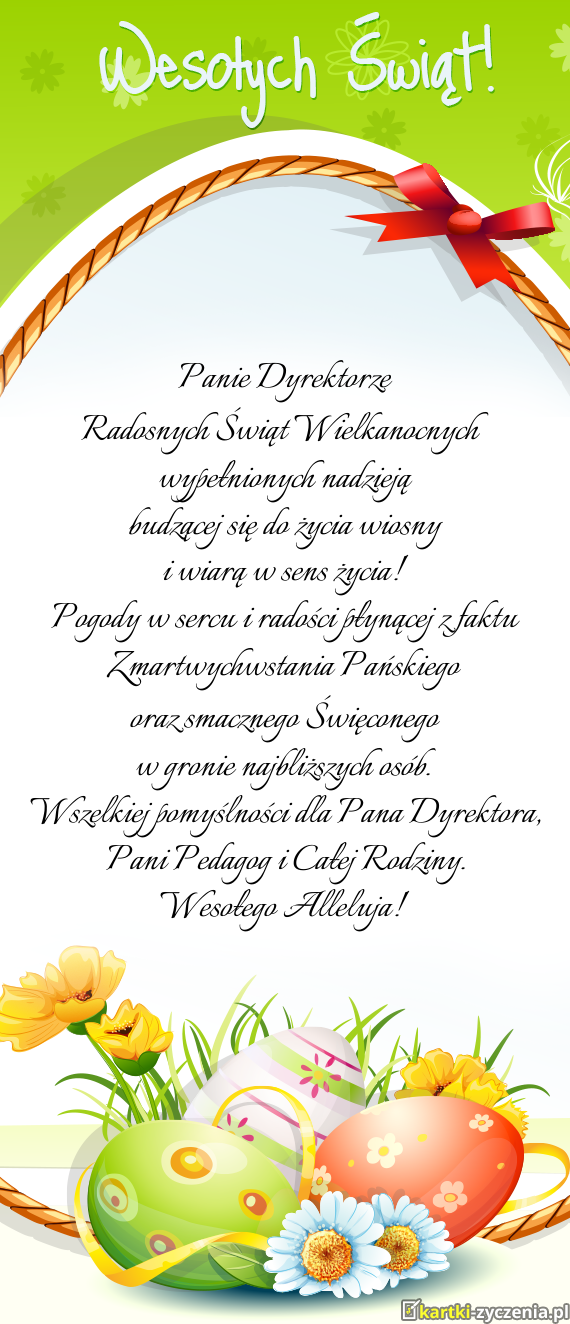 Wesołych Świąt!
Panie Dyrektorze
Radosnych Świąt Wielkanocnych
wypełnionych nadzieją
budzącej się do życia wiosny
i wiarą w sens życia!
Pogody w sercu i radości płynącej z faktu
Zmartwychwstania Pańskiego
oraz smacznego Święconego
w gronie najbliższych osób.
Wszelkiej pomyślności dla Pana Dyrektora,
Pani Pedagog i Całej Rodziny.
Wesołego Alleluja!
kartki-zyczenia.pl